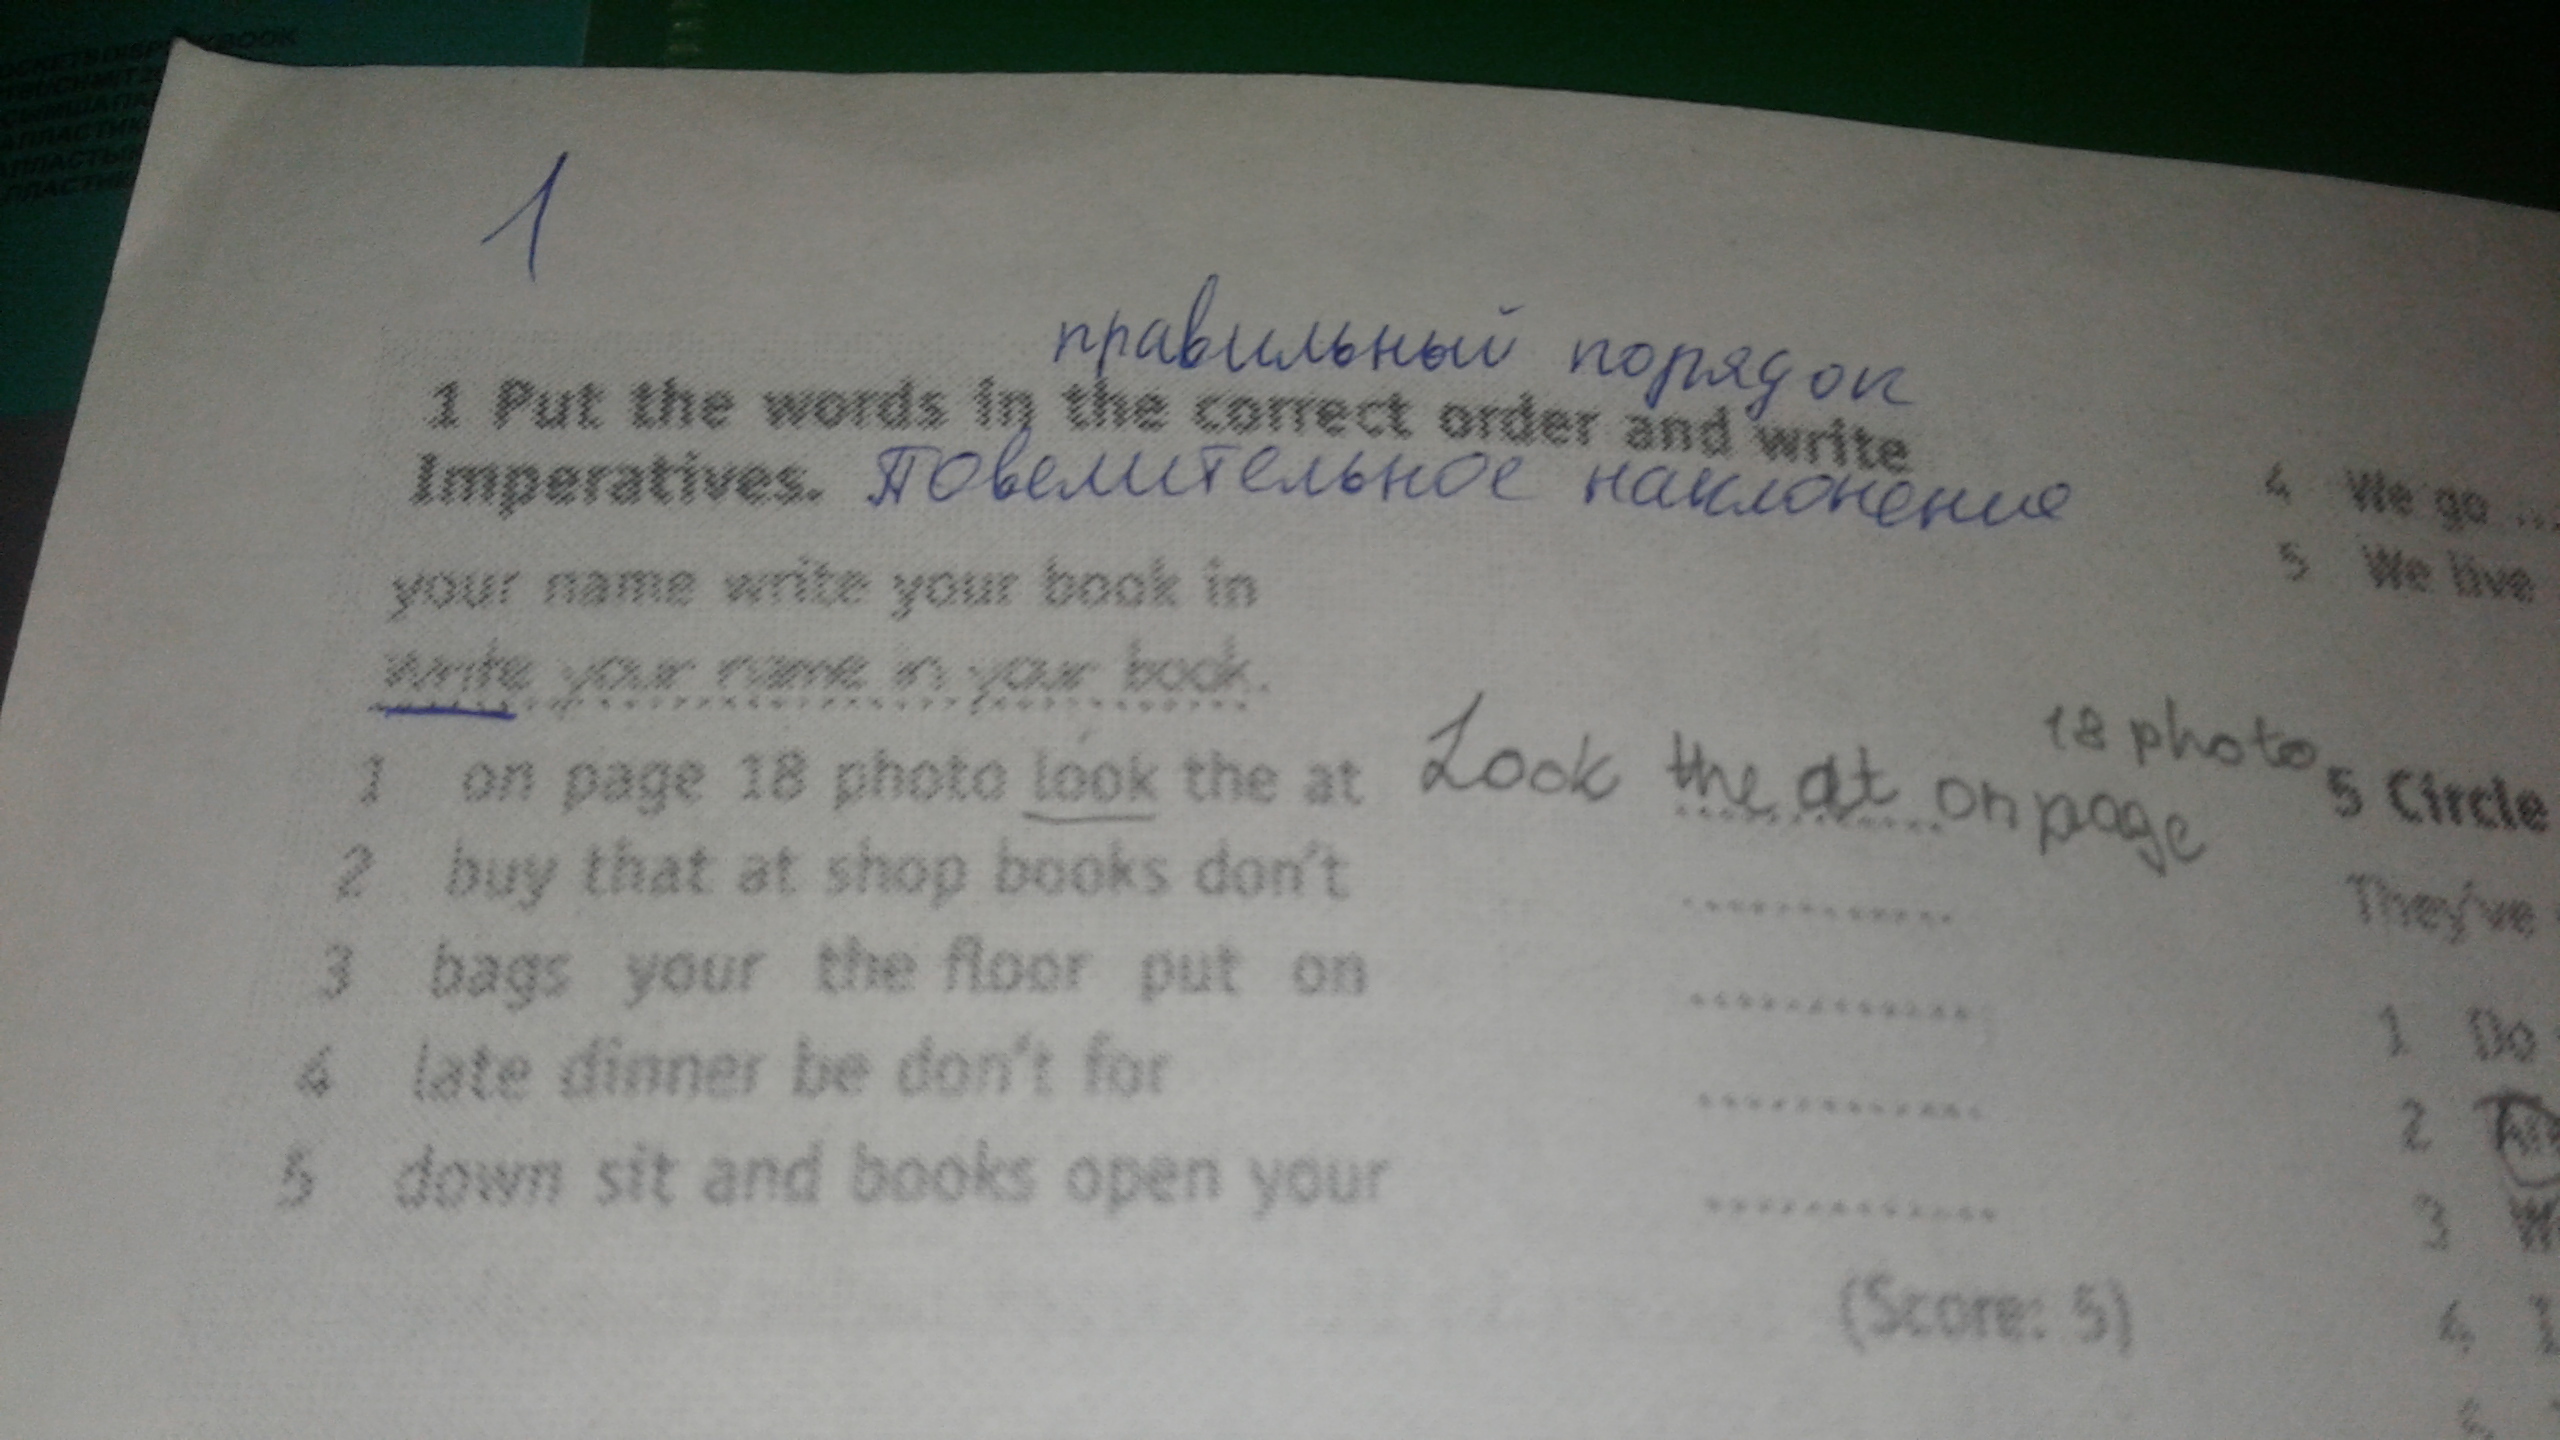 1
правильный порядок
1 Put the words in the correct order and write
Imperatives. Повелительное наклонение
your name write your book in
Write your name in your book.
1 on page 18 photo look the at Look the at on page 18 photo
2 buy that at shop books don't ............
3 bags your the floor put on ............
4 late dinner be don't for ............
5 down sit and books open your ............
(Score: 5)
4 We go ...
5 We live
5 Circle
They've
1 Do
2
3
4